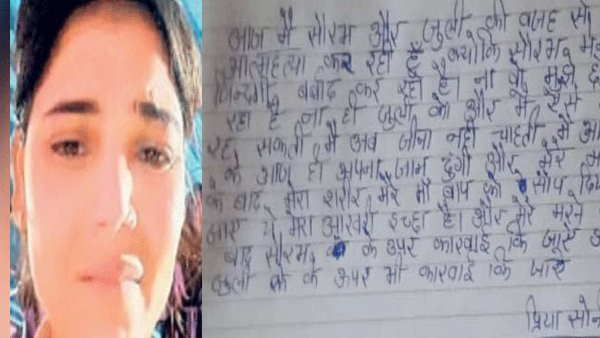 आज मै सौरभ और जुली की वजह से
आत्महत्या कर रही हूँ क्योंकि सौरभ मे
जिन्दगी बर्बाद कर रहा है। ना वो मुझे छ
रहा है ना ही जुली को और मै ऐसे
रह सकती मै अब जीना नही चाहती मै आ
के आज ही अपना जान दूंगी और मेरे म
के बाद मेरा शरीर मेरे माँ बाप को सौप दि
जाए ये मेरा आखरी इच्छा है। और मेरे मरने
बाद सौरभ के उपर कारवाई कि जाए
जुली के के ऊपर भी कारवाई कि जाए
प्रिया सोनी